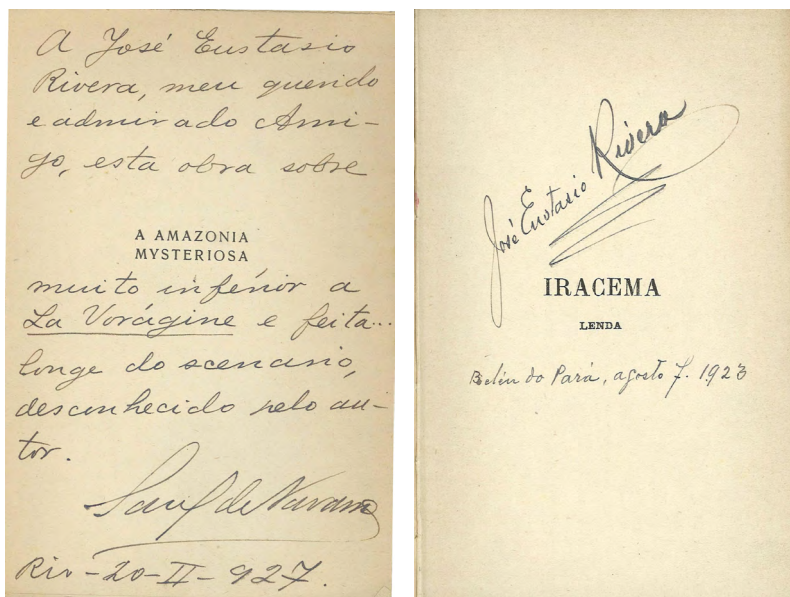 A José Eustasio
Rivera, meu querido
e admirado Ami-
go, esta obra sobre
A AMAZONIA
MYSTERIOSA
muito inferior a
La Vorágine e feita...
longe do scenario,
desconhecido pelo au-
tor.
Saul de Navarro
Rio-20-II-927.
José Eustasio Rivera
IRACEMA
LENDA
Belén do Pará, agosto 7. 1923